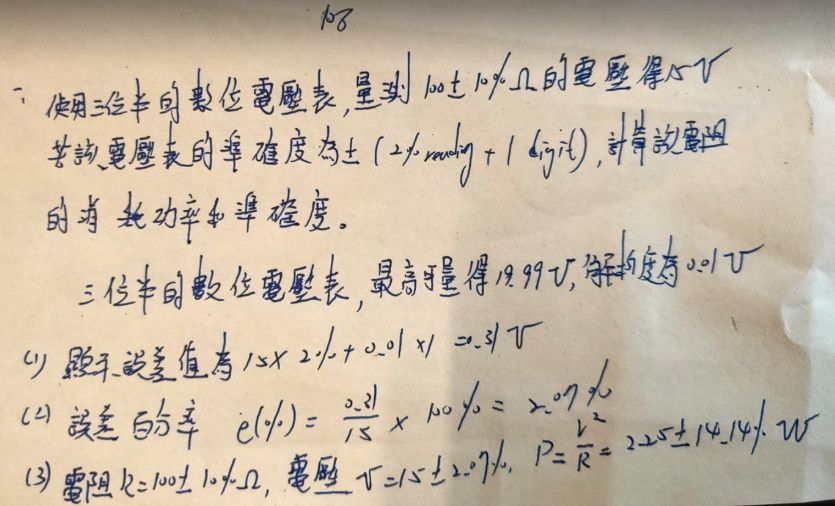 108
一、使用三位半的數位電壓表,量測100±10%Ω的電壓得15V
若該電壓表的準確度為±(2%reading+1digit),計算該電阻
的消耗功率和準確度。
三位半的數位電壓表,最高可量得19.99V,解析度為0.01V
(1) 顯示誤差值為15×2%+0.01×1=0.31V
(2) 誤差百分率 e(%)=0.31/15×100%=2.07%
(3) 電阻R=100±10%Ω,電壓V=15±2.07%,P=V²/R=2.25±14.14%W